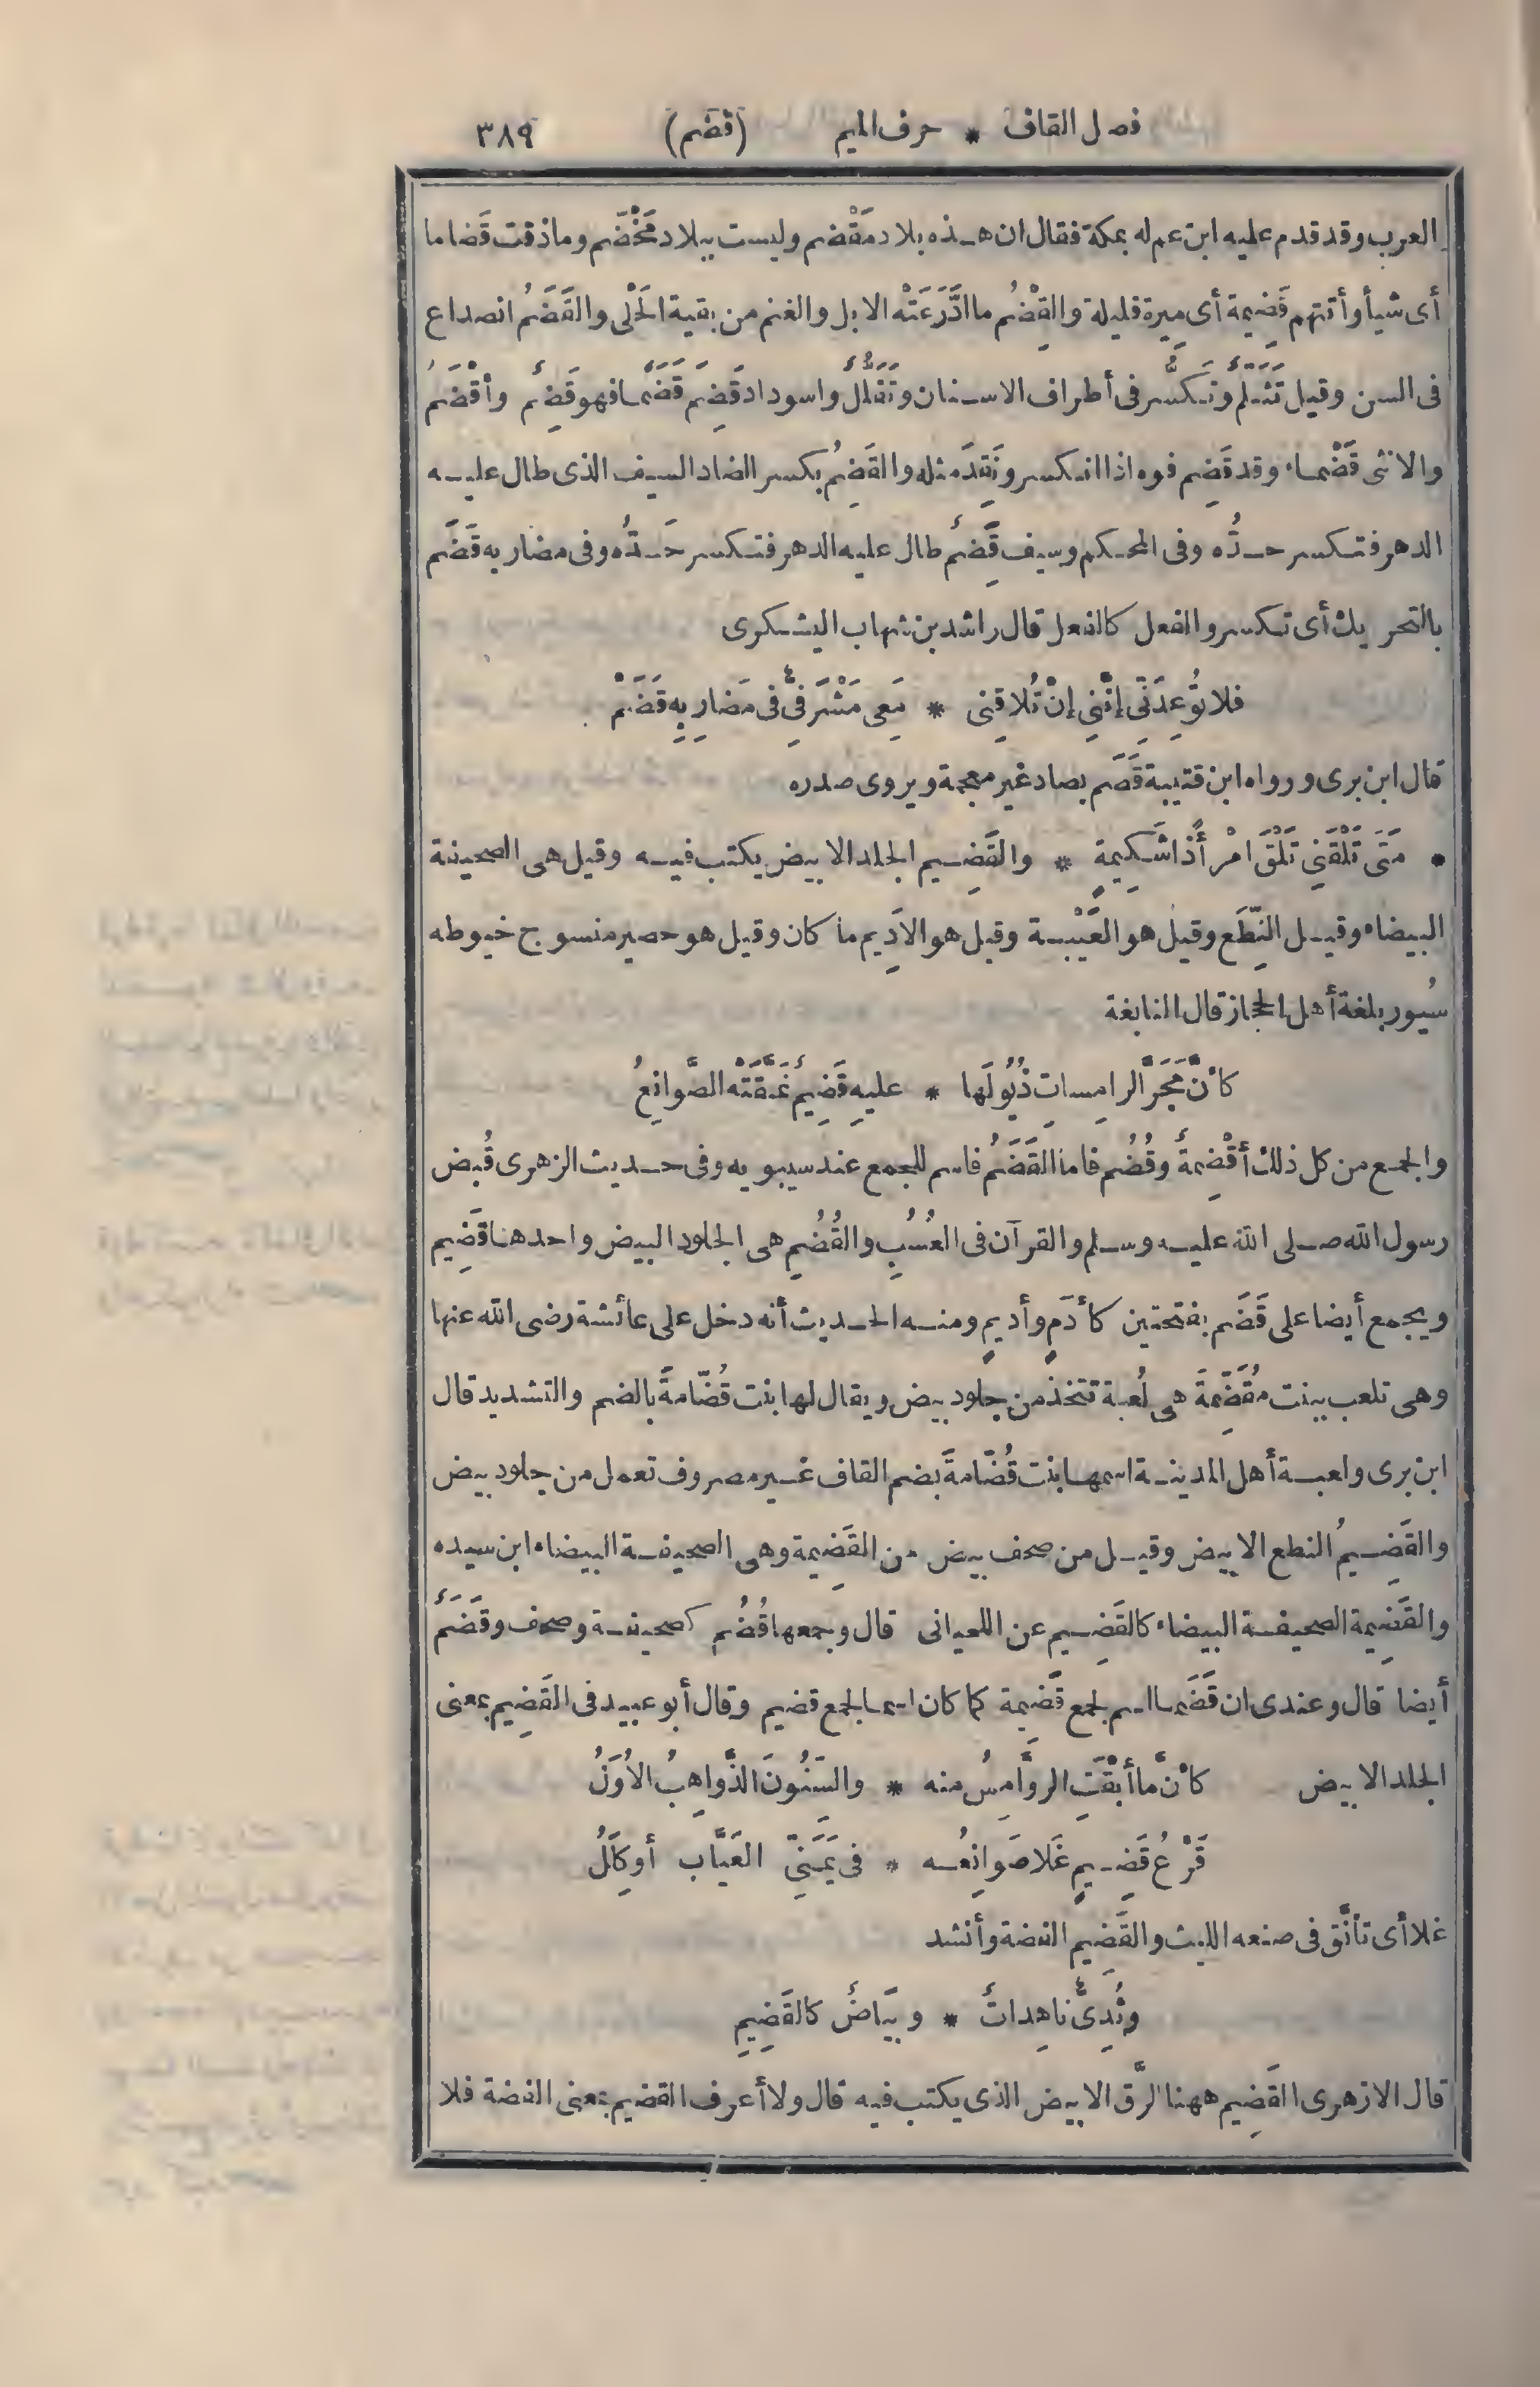 فصل القاف * حرف الميم (قضم) ٣٨٩
العرب وقد قدم عليه ابن عم له بمكة فقال ان هذه بلاد مَقْضم وليست ببلاد مَخْضَم وماذقت قَضاما
أى شيأ وأتتهم قَضِيمة أى مِيرة قليلة والقِضْمُ ما ادَّرَعَتْه الابل والغنم من بقية الحَلْى والقَضَمُ انصداع
فى السن وقيل تَثَلُّمٌ وتَكَسُّر فى أطراف الاسنان وتَفَلُّلٌ واسوداد قَضِمَ قَضَمًا فهو قَضِمٌ وأقْضَمُ
والانثى قَضْماء وقد قَضِم فوه اذا انكسر ونَقِدَ مثله والقَضِمُ بكسر الضاد السيف الذى طال عليه
الدهر فتكسر حدُّه وفى المحكم وسيف قَضِمٌ طال عليه الدهر فتكسر حَدُّه وفى مضاربه قَضَم
بالتحريك أى تكسر والفعل كالفعل قال راشد بن شهاب اليشكرى
فلا تُوعِدَنِّى إنَّنِى إنْ تُلاقِنى * مَعِى مَشْرَفِىٌّ فى مَضارِبِهِ قَضَمْ
قال ابن برى ورواه ابن قتيبة قَصَم بصاد غير معجمة ويروى صدره
* مَتَى تَلْقَنِى تَلْقَ امْرَأً ذا شَكِيمةٍ * والقَضِيم الجلد الابيض يكتب فيه وقيل هى الصحيفة
البيضاء وقيل النِّطَع وقيل هو العَيْبة وقيل هو الاَدِيم ما كان وقيل هو حصير منسوج خيوطه
سُيور بلغة أهل الحجاز قال النابغة
كأنَّ مَجَرَّ الرامِساتِ ذُيُولَها * عليهِ قَضِيمٌ نَمَّقَتْه الصَّوانِعُ
والجمع من كل ذلك أقْضِمةٌ وقُضُم فاما القَضَمُ فاسم للجمع عند سيبويه وفى حديث الزهرى قُبض
رسول الله صلى الله عليه وسلم والقرآن فى العُسُبِ والقُضُمِ هى الجلود البيض واحدها قَضِيم
ويجمع أيضا على قَضَم بفتحتين كأدَمٍ وأديمٍ ومنه الحديث أنه دخل على عائشة رضى الله عنها
وهى تلعب ببنت مُقَضَّمةَ هى لُعبة تتخذ من جلود بيض ويقال لها بنت قُضّامةَ بالضم والتشديد قال
ابن برى ولعبة أهل المدينة اسمها بنت قُضّامةَ بضم القاف غير مصروف تعمل من جلود بيض
والقَضِيمُ النطع الابيض وقيل من صحف بيض من القَضِيمة وهى الصحيفة البيضاء ابن سيده
والقَضِيمة الصحيفة البيضاء كالقَضِيم عن اللحيانى قال وجمعها قُضُم كصحيفة وصحف وقَضَمٌ
أيضا قال وعندى ان قَضَما اسم لجمع قَضِيمة كما كان اسما لجمع قضيم وقال أبو عبيد فى القَضِيم بمعنى
الجلد الابيض كأنَّ ما أبْقَتِ الروَّامِسُ منه * والسّنُونَ الذَّواهِبُ الاُوَلُ
قَرْعُ قَضِيمٍ غَلا صَوانِعُه * فى يَمَنِىِّ العَيَّاب أو كِلَلُ
غلا أى تأنَّق فى صنعه الليث والقَضِيم الفضة وأنشد
وثُدِىٌّ ناهِداتٌ * وبَيَاضٌ كالقَضِيمِ
قال الازهرى القَضِيم ههنا الرَّق الابيض الذى يكتب فيه قال ولا أعرف القضيم بمعنى الفضة فلا